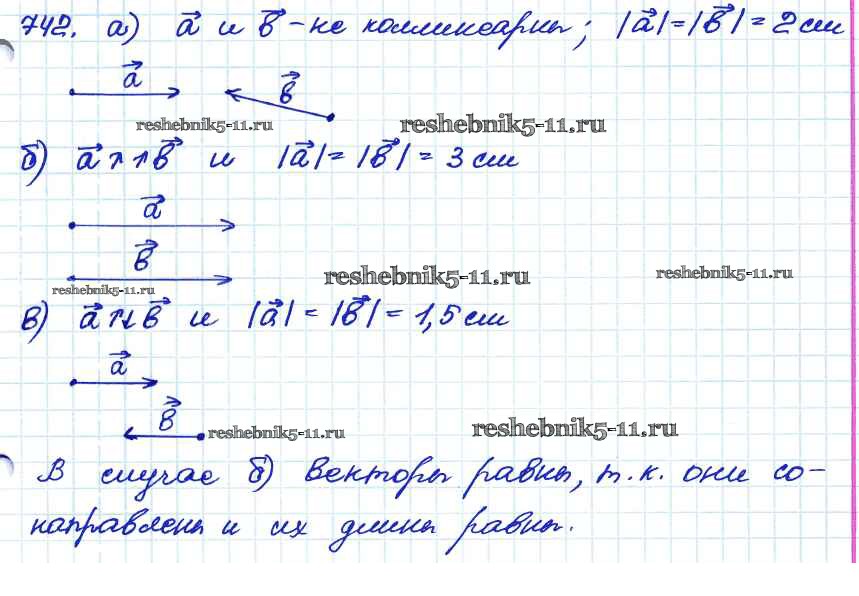 742. а) a⃗ и b⃗ - не коллинеарны; |a⃗| = |b⃗| = 2 см
a⃗ b⃗
reshebnik5-11.ru reshebnik5-11.ru
б) a⃗ ↑↑ b⃗ и |a⃗| = |b⃗| = 3 см
a⃗
b⃗
reshebnik5-11.ru reshebnik5-11.ru reshebnik5-11.ru
в) a⃗ ↑↓ b⃗ и |a⃗| = |b⃗| = 1,5 см
a⃗
b⃗
reshebnik5-11.ru reshebnik5-11.ru
В случае б) векторы равны, т.к. они со-
направлены и их длины равны.